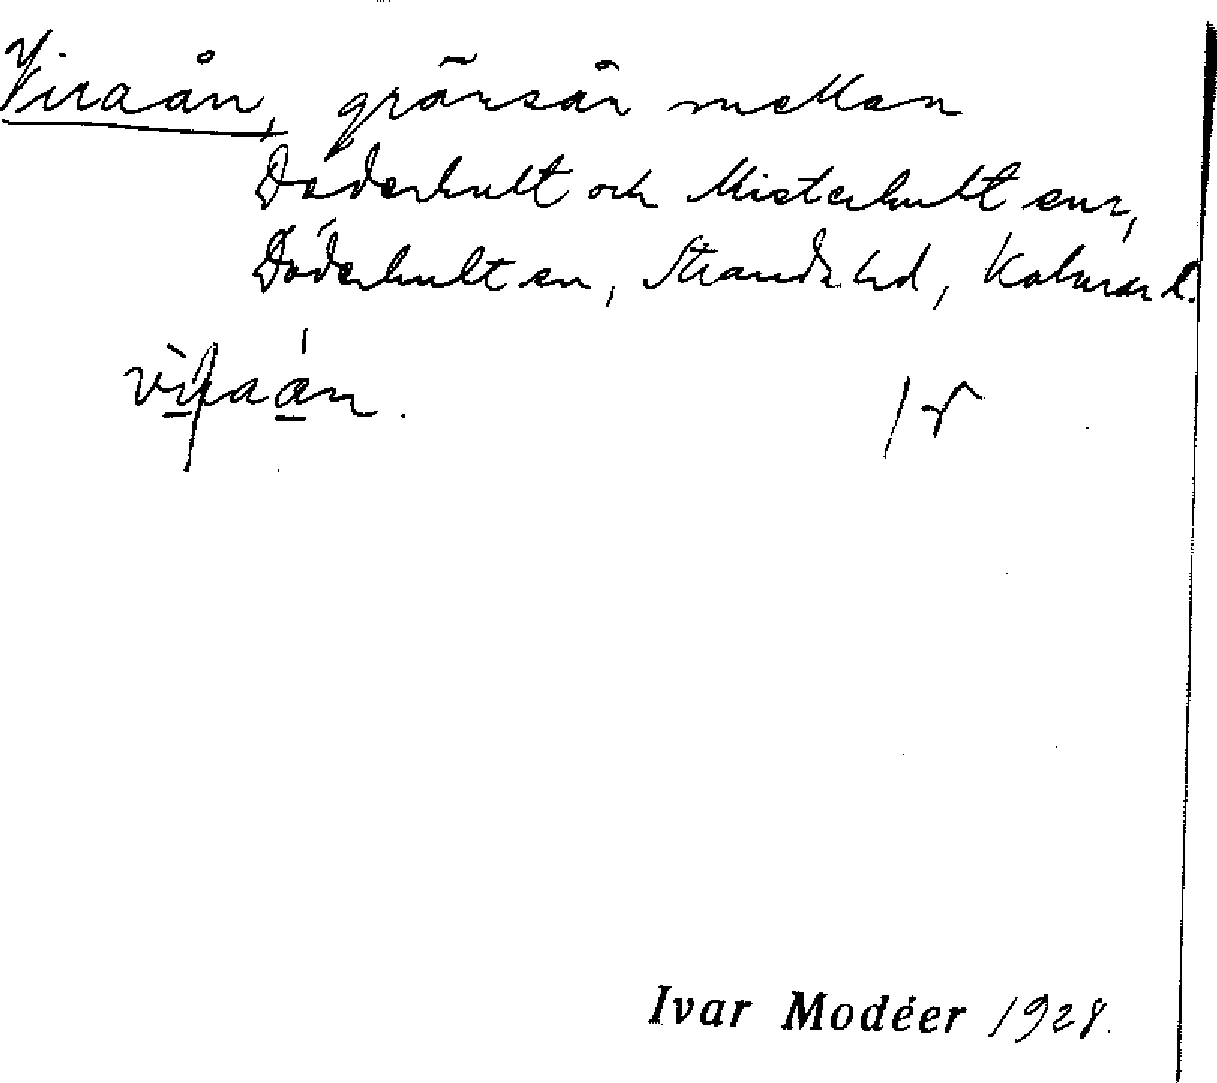 Viraån, gränsån mellan
Döderhult och Misterhult snr,
Döderhult sn, Stranda hd, Kalmar l.
vìraán.
Ivar Modéer 1928.